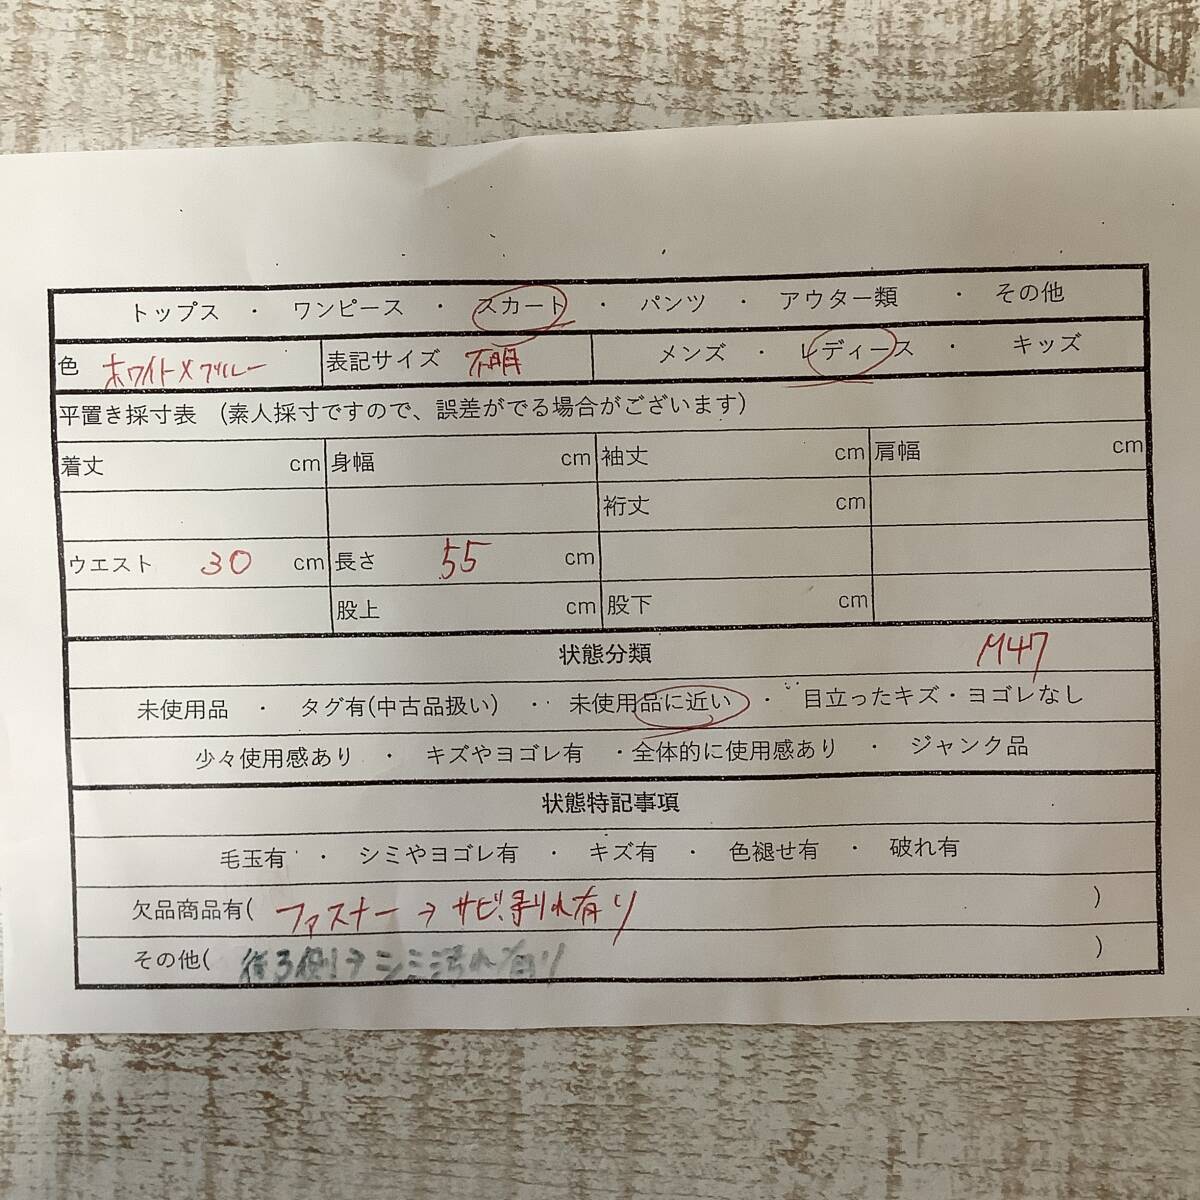 トップス ・ ワンピース ・ スカート ・ パンツ ・ アウター類 ・ その他
色 ホワイト×ブルー 表記サイズ 不明 メンズ ・ レディース ・ キッズ
平置き採寸表 (素人採寸ですので、誤差がでる場合がございます)
着丈 cm 身幅 cm 袖丈 cm 肩幅 cm
裄丈 cm
ウエスト 30 cm 長さ 55 cm
股上 cm 股下 cm
状態分類 M47
未使用品 ・ タグ有(中古品扱い) ・・ 未使用品に近い ・ 目立ったキズ・ヨゴレなし
少々使用感あり ・ キズやヨゴレ有 ・全体的に使用感あり ・ ジャンク品
状態特記事項
毛玉有 ・ シミやヨゴレ有 ・ キズ有 ・ 色褪せ有 ・ 破れ有
欠品商品有( ファスナー→サビ、剥れ有り )
その他( 後ろ側→シミ汚れ有り )